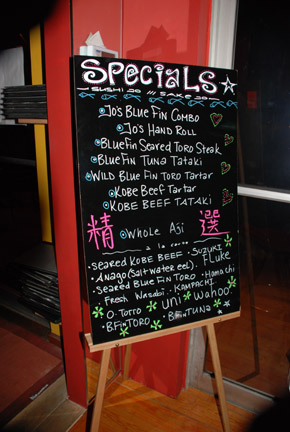 SPeCIALS
SUSHI JO /// SAKE JO
Jo's Blue Fin Combo
Jo's Hand Roll
BlueFin Seared Toro Steak
BlueFin Tuna Tataki
Wild Blue Fin Toro Tartar
Kobe Beef Tartar
KOBE BEEF TATAKI
精 Whole Aji 選
a la carte
Seared KOBE BEEF • SUZUKI
• Anago (Salt water eel) • Fluke
• Seared Blue Fin Toro • Hamachi
• Fresh Wasabi • KAMPACHI
O-Toro • uni • Wahoo
BFin TORO • BFin TUNA